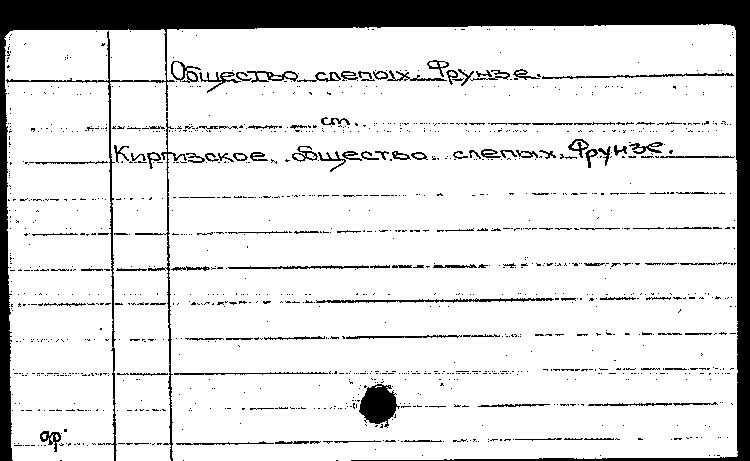 Общество слепых. Фрунзе.
см.
Киргизское общество слепых. Фрунзе.